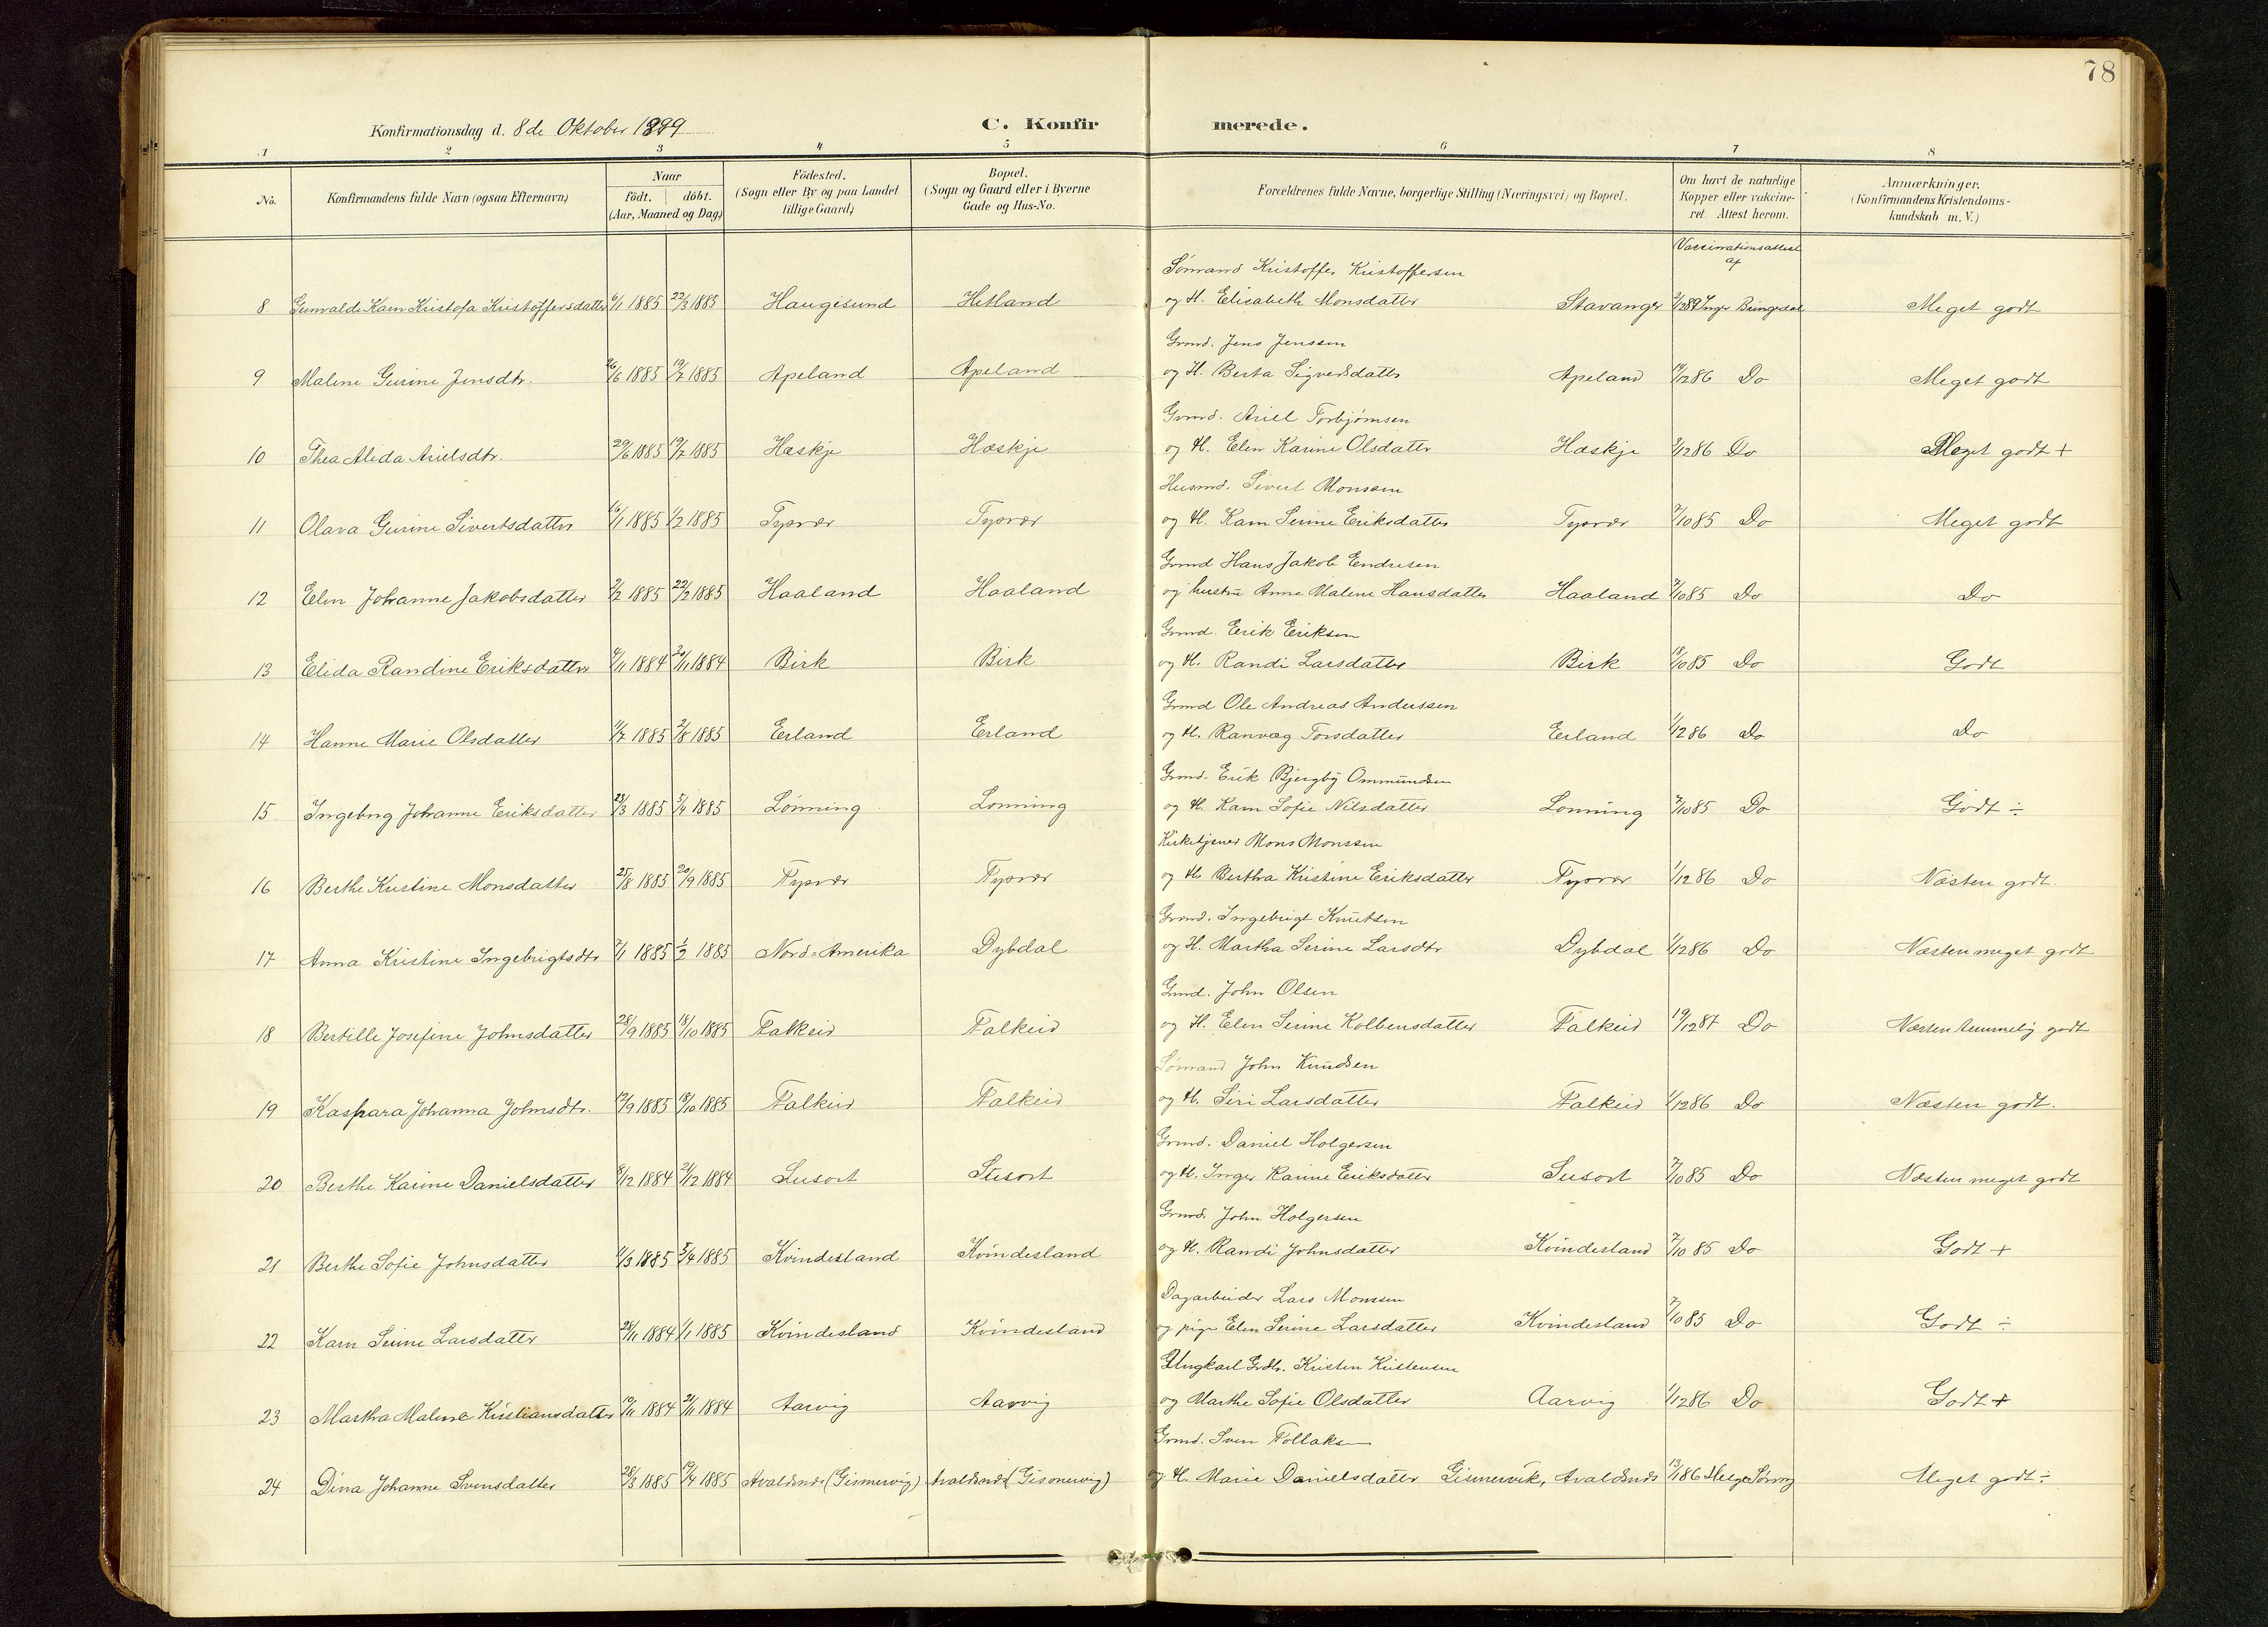 78
Konfirmationsdag d. 8de Oktober 1899
C. Konfirmerede.
1 2 3 4 5 6 7 8
No. Konfirmandens fulde Navn (ogsaa Efternavn) Naar födt. döbt. (Aar, Maaned og Dag) Födested. (Sogn eller By og paa Landet tillige Gaard) Bopæl. (Sogn og Gaard eller i Byerne Gade og Hus-No. Forældrenes fulde Navne, borgerlige Stilling (Næringsvei) og Bopæl. Om havt de naturlige Kopper eller vakcineret. Attest herom. Anmærkninger. (Konfirmandens Kristendomskundskab m. V.)
Vaccinationsattest af
Sømand Kristoffer Kristoffersen
8 Gunvalde Karn Kristofa Kristoffersdatter 6/1 1885 22/3 1885 Haugesund Hetland og H. Elisabeth Monsdatter Stavanger Inger Bringedal Meget godt
Grmd. Jens Jenssen
9 Malene Gurine Jensdtr. 26/6 1885 19/7 1885 Apeland Apeland og H. Berta Sigverdsdatter Apeland 14/12 86 Do Meget godt
Grmd. Ariel Torbjørnsen
10 Thea Alida Arielsdtr. 29/6 1885 19/7 1885 Hæskje Hæskje og H. Elen Karine Olsdatter Hæskje 3/12 86 Do Meget godt +
Husmd. Sivert Monsen
11 Olava Gurine Sivertsdatter 16/1 1885 1/2 1885 Tysvær Tysvær og H. Karn Serine Eriksdatter Tysvær 7/10 85 Do Meget godt
Grmd Hans Jakob Endresen
12 Elen Johanne Jakobsdatter 2/2 1885 22/2 1885 Haaland Haaland og hustru Anne Malene Hansdatter Haaland 7/10 85 Do Do
Grmd. Erik Eriksen
13 Elida Randine Eriksdatter 9/11 1884 20/11 1884 Birk Birk og H. Randi Larsdatter Birk 18/10 85 Do Godt
Grmd Ole Andreas Anderssen
14 Hanne Marie Olsdatter 11/7 1885 2/8 1885 Erland Erland og H. Ranvæg Torsdatter Erland 1/12 86 Do Do
Grmd. Erik Bjergby Ommundsen
15 Ingebrg Johanne Eriksdatter 23/3 1885 5/4 1885 Lønning Lønning og H. Karn Sofie Nilsdatter Lønning 7/10 85 Do Godt ÷
Kirketjener Mons Monssen
16 Berthe Kristine Monsdatter 25/8 1885 20/9 1885 Tysvær Tysvær og H. Bertha Kristine Eriksdatter Tysvær 1/12 86 Do Næsten godt.
Grmd. Ingebrigt Knutsen
17 Anna Kristine Ingebrigtsdtr 7/1 1885 1/2 1885 Nord-Amerika Dybdal og H. Martha Serine Larsdtr Dybdal 1/12 86 Do Næsten meget godt
Grmd. John Olsen
18 Bertille Josefine Johnsdatter 28/9 1885 18/10 1885 Falkeid Falkeid og H. Elen Serine Kolbensdatter Falkeid 19/12 87 Do Næsten temmelig godt
Sømand John Knudsen
19 Kaspara Johanna Johnsdtr. 19/9 1885 18/10 1885 Falkeid Falkeid og H. Siri Larsdatter Falkeid 1/12 86 Do Næsten godt.
Grmd. Daniel Holgersen
20 Berthe Karine Danielsdatter 8/12 1884 21/12 1884 Susort Susort og H. Inger Karine Eriksdatter Susort 7/10 85 Do Næsten meget godt
Grmd. John Holgersen
21 Berthe Sofie Johnsdatter 11/3 1885 5/4 1885 Kvindesland Kvindesland og H. Randi Johnsdatter Kvindesland 7/10 85 Do Godt +
Dagarbeider Lars Monsen
22 Karn Serine Larsdatter 28/11 1884 1/1 1885 Kvindesland Kvindesland og pige Elen Serine Larsdatter Kvindesland 7/10 85 Do Godt ÷
Ungkarl Kristen Kristensen
23 Martha Malene Kristiansdatter 10/11 1884 21/11 1884 Aarvig Aarvig og Marthe Sofie Olsdatter Aarvig 1/12 86 Do Godt +
Grmd. Sven Tollaksen
24 Dina Johanne Svensdatter 28/3 1885 19/4 1885 Avaldsnes (Gismervig) Avaldsnes (Gismervig) og H. Marie Danielsdatter Gismervik, Avaldsnes 13/1 86 Helge Meget godt ÷